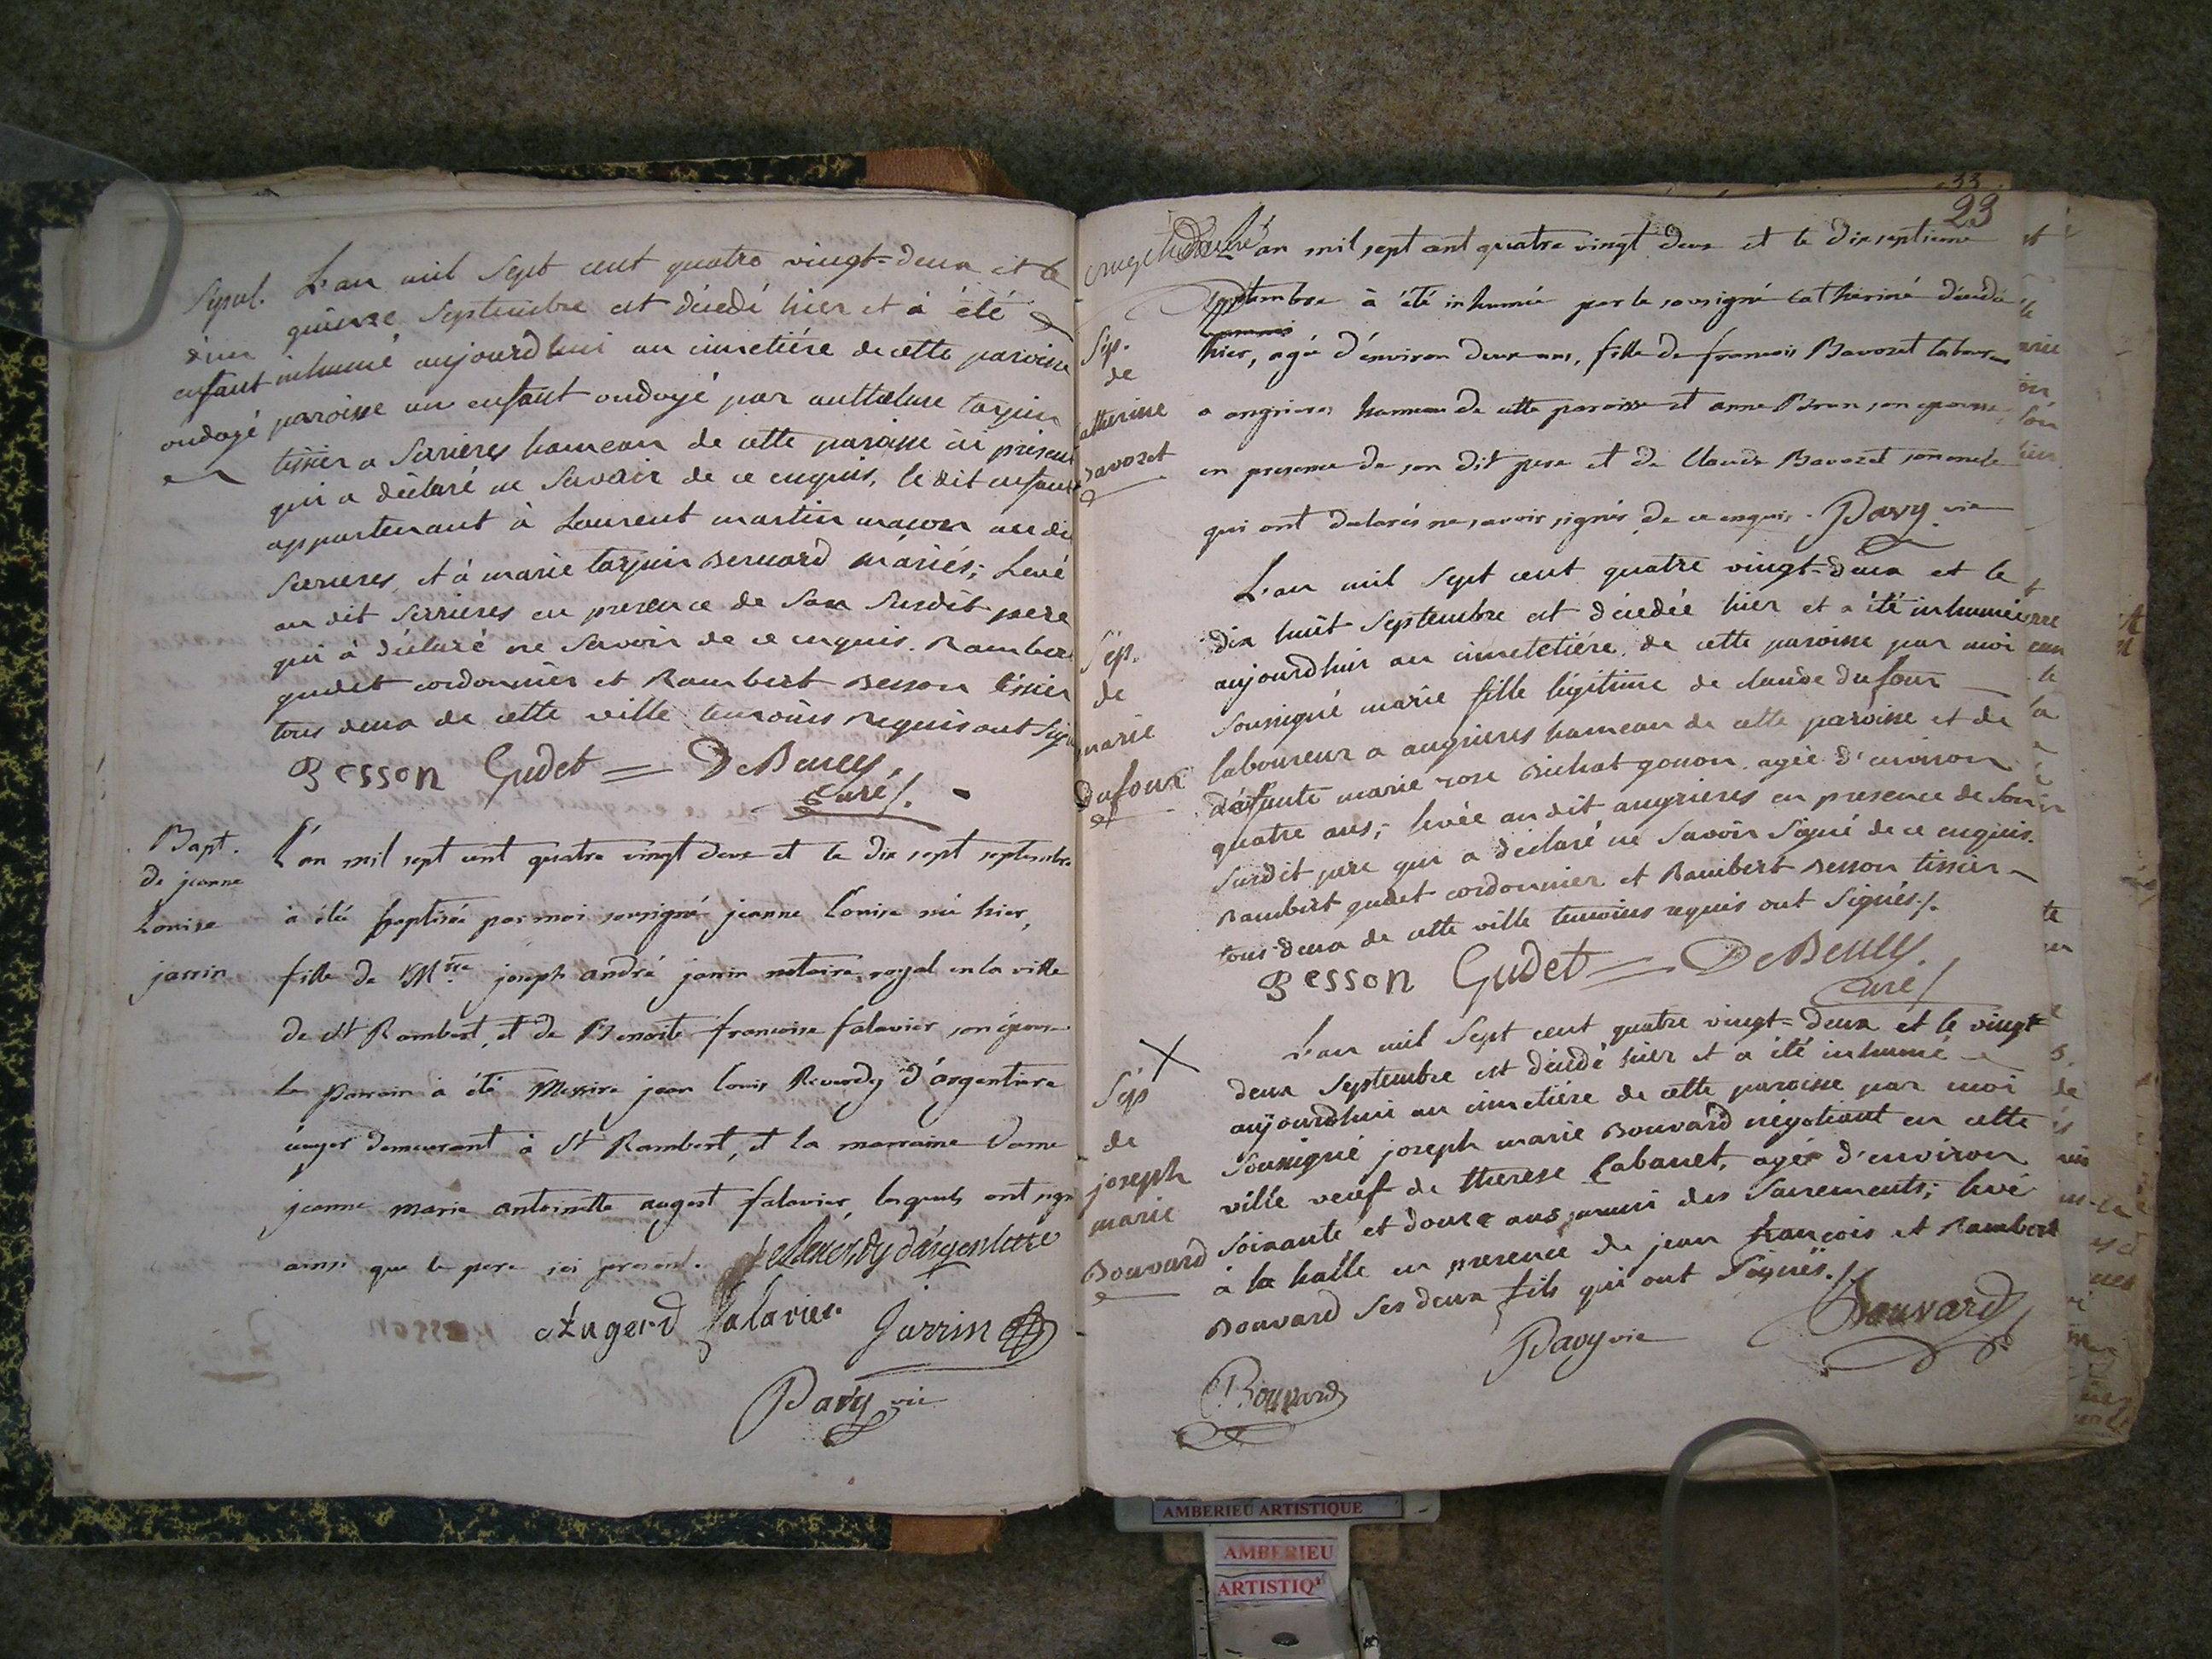 Sepul. L'an mil Sept cent quatre vingt=deux et le
d'un quinze Septembre est décédé hier et à été
enfant inhumé aujourd'hui au cimetiére de cette paroisse
ondoyé paroisse un enfant ondoyé par anthelme tarpin
tissier a Serrieres hameau de cette paroisse ici présent
qui a déclaré ne Savoir de ce enquis, le dit enfant
appartenant à Laurent martin maçon au dit
Serrieres, et à marie tarpin Bernard mariés; Levé
au dit Serrieres en presence de Son Susdit pere
qui à déclaré ne Savoir de ce enquis. Rambert
gudet cordonnier et Rambert Besson tissier
tous deux de cette ville temoins requis ont Signé
Besson Gudet = DeBeney
Curé/.
Bapt.
de jeanne
Louise
jarrin
L'an mil sept cent quatre vingt deux et le dix sept septembre
à été baptisée par moi sousigné jeanne Louise née hier,
fille de Mtre joseph andré jarrin notaire royal en la ville
de St Rambert, et de Benoite francoise falavier son épouse
le parrain à été Messire jean louis Reverdy d'argentiere
écuyer demeurant à St Rambert, et la marraine Dame
jeanne marie antoinette augerd falavier, lesquels ont signé
ainsi que le pere ici present. Reverdy d'argentiere
Augerd falavier Jarrin
Pavy vic
33
23
L'an mil sept cent quatre vingt deux et le dixseptieme
Septembre à été inhumée par le sousigné catherine décédée
hier, agée d'énviron deux ans, fille de francois Bavozet laboureur
a angrieres hameau de cette paroisse et anne Péron son epouse,
en presence de son dit pere et de Claude Bavozet son oncle
qui ont declarés ne savoir signés de ce enquis. Pavy vic
Sép.
de
catterine
Bavozet
L'an mil Sept cent quatre vingt=deux et le
dix huit Septembre est décédée hier et a été inhumée
aujourdhui au cimetetiére de cette paroisse par moi
Soussigné marie fille légitime de claude dufour
laboureur a angrieres hameau de cette paroisse et de
défunte marie rose Bichat gonon agée d'environ
quatre ans; levée au dit angrieres en presence de Son
Susdit pere qui a déclaré ne Savoir Signé de ce enquis.
Rambert gudet cordonnier et Rambert Besson tissier
tous deux de cette ville temoins requis ont Signés/.
Besson Gudet = DeBeney
Curé/
Sép.
de
marie
Dufour
L'an mil Sept cent quatre vingt=deux et le vingt
deux Septembre est décédé hier et a été inhumé
aujourdhui au cimetiére de cette paroisse par moi
Soussigné joseph marie Bouvard négotiant en cette
ville veuf de therese Cabanet, agé d'environ
Soixante et douze ans, muni des Sacrements; levé
à la halle en presence de jean françois et Rambert
Bouvard Ses deux fils qui ont Signés./
Pavy vic Bouvard
Bouvard
Sép
de
joseph
marie
Bouvard
AMBERIEU ARTISTIQUE
AMBERIEU
ARTISTIQ